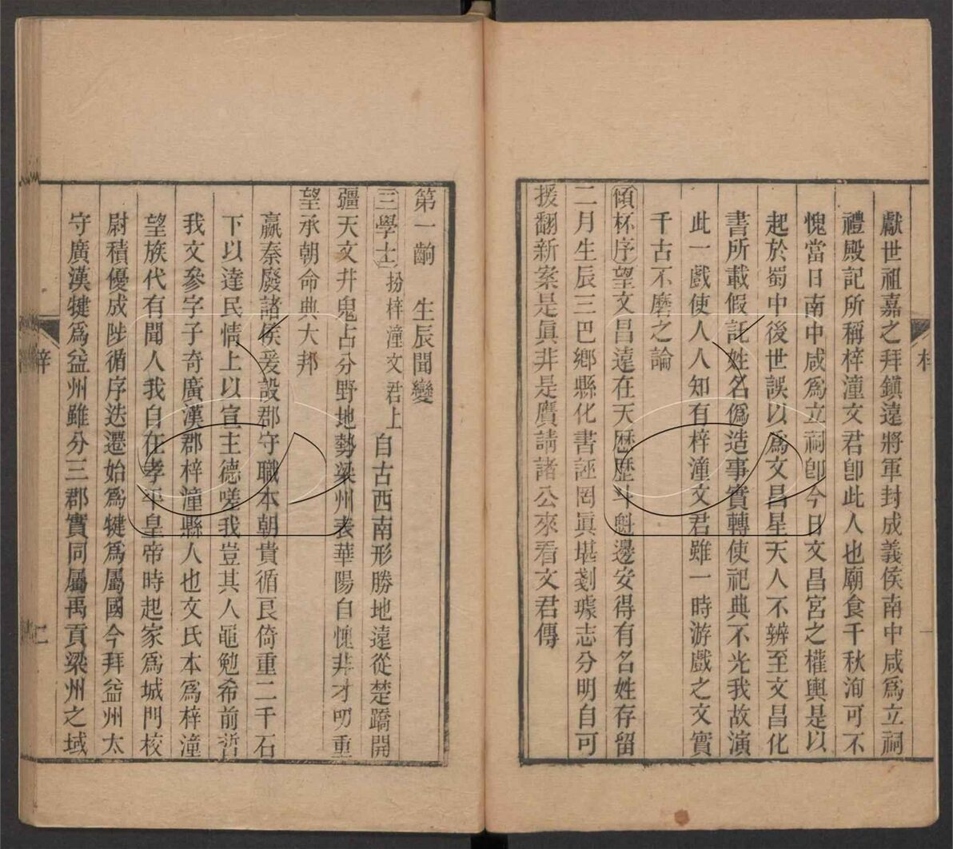 獻世祖嘉之拜鎭遠將軍封成義侯南中咸爲立祠
禮殿記所稱梓潼文君卽此人也廟食千秋洵可不
愧當日南中咸爲立祠卽今日文昌宮之權輿是以
起於蜀中後世誤以爲文昌星天人不辨至文昌化
書所載假託姓名僞造事實轉使祀典不光我故演
此一戲使人人知有梓潼文君雖一時游戲之文實
千古不磨之論
傾杯序望文昌遠在天歷歷斗魁邊安得有名姓存留
二月生辰三巴鄉縣化書誣罔眞堪劃璩志分明自可
援翻新案是眞非是贗請諸公來看文君傳
第一齣 生辰聞變
三學士扮梓潼文君上自古西南形勝地遠從楚蹻開
疆天文井鬼占分野地勢梁州表華陽自愧非才叨重
望承朝命典大邦
嬴秦廢諸侯爰設郡守職本朝貴循良倚重二千石
下以達民情上以宣主德嗟我豈其人黽勉希前哲
我文參字子奇廣漢郡梓潼縣人也文氏本爲梓潼
望族代有聞人我自在孝平皇帝時起家爲城門校
尉積優成陟循序迭遷始爲犍爲屬國今拜益州太
守廣漢犍爲益州雖分三郡實同屬禹貢梁州之域
梓
二